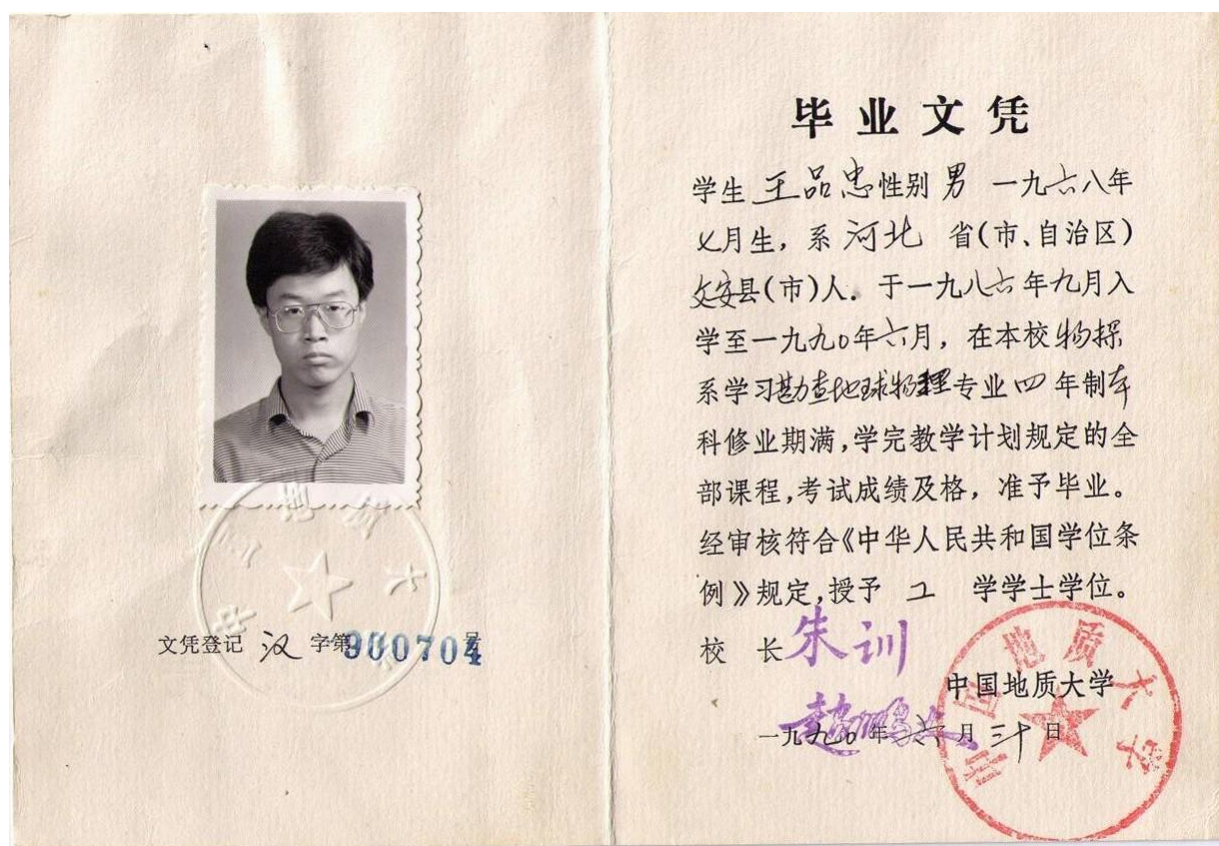 文凭登记 汉 字第900704号
毕业文凭
学生 王品忠 性别 男 一九六八年
七月生，系 河北 省(市、自治区)
文安县(市)人．于一九八六年九月入
学至一九九0年六月，在本校物探
系学习勘查地球物理专业四年制本
科修业期满,学完教学计划规定的全
部课程,考试成绩及格，准予毕业。
经审核符合《中华人民共和国学位条
例》规定,授予 工 学学士学位。
校 长 朱训
赵鹏大
中国地质大学
一九九0年六月三十日
中国地质大学